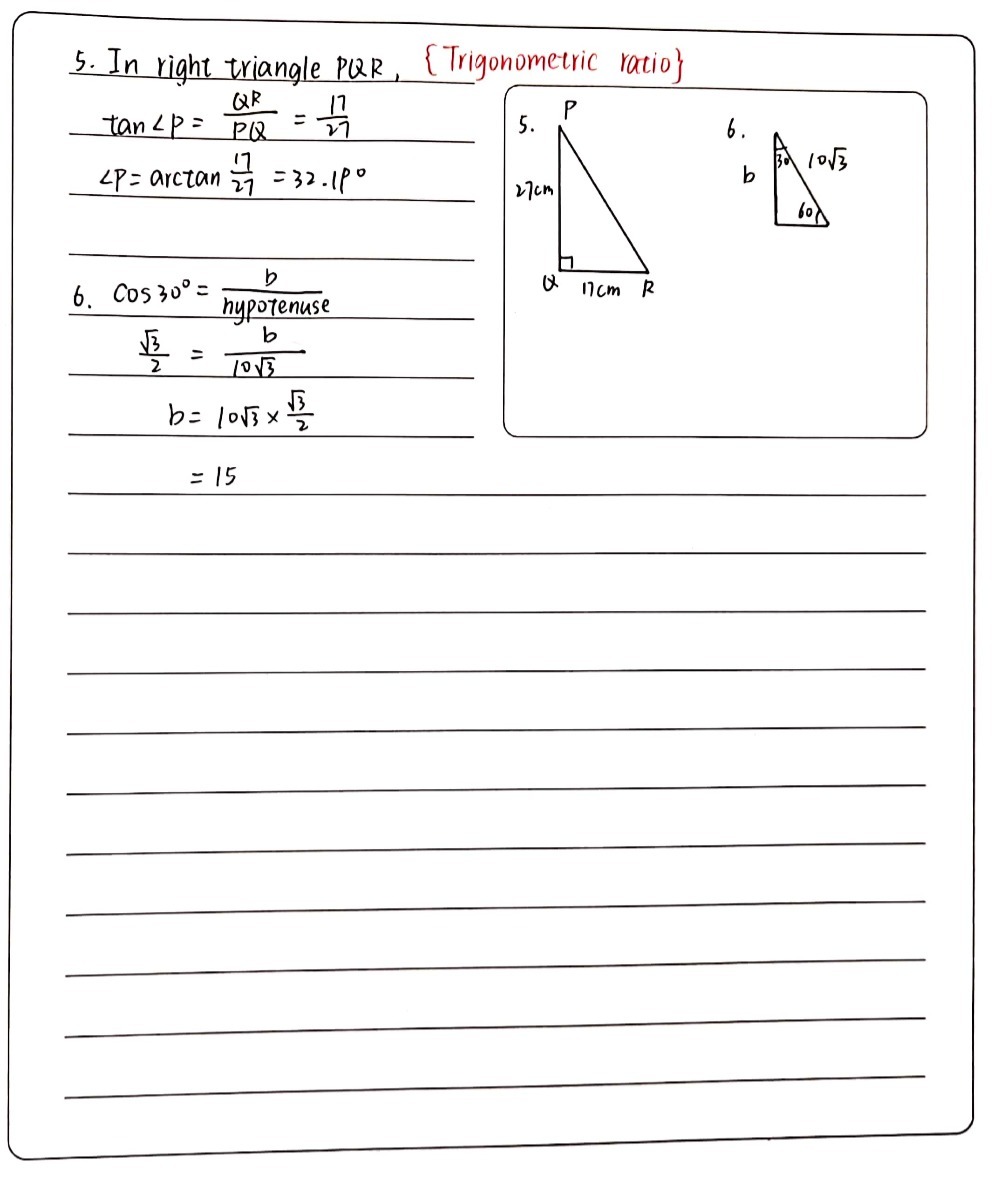 5. In right triangle PQR, {Trigonometric ratio}
tan∠P = QR/PQ = 17/27
∠P = arctan 17/27 = 32.19°
6. Cos30° = b/hypotenuse
√3/2 = b/10√3
b = 10√3 × √3/2
= 15
5.
P
27cm
Q 17cm R
6.
30 10√3
b
60